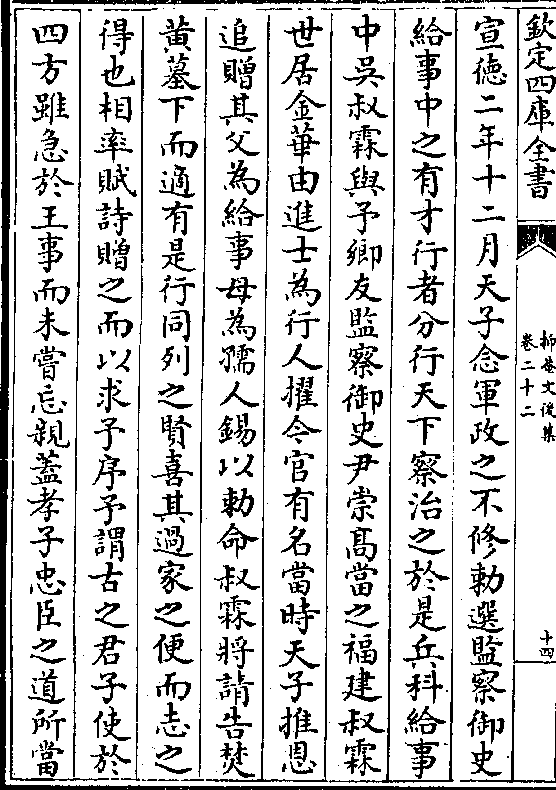 欽定四庫全書
抑菴文後集
卷二十二
十四
宣徳二年十二月天子念軍政之不修勅選監察御史
給事中之有才行者分行天下察治之於是兵科給事
中吳叔霖與予鄉友監察御史尹崇髙當之福建叔霖
世居金華由進士為行人擢今官有名當時天子推恩
追贈其父為給事母為孺人錫以勅命叔霖將請告焚
黄墓下而適有是行同列之賢喜其過家之便而志之
得也相率賦詩贈之而以求予序予謂古之君子使於
四方雖急於王事而未嘗忘親蓋孝子忠臣之道所當